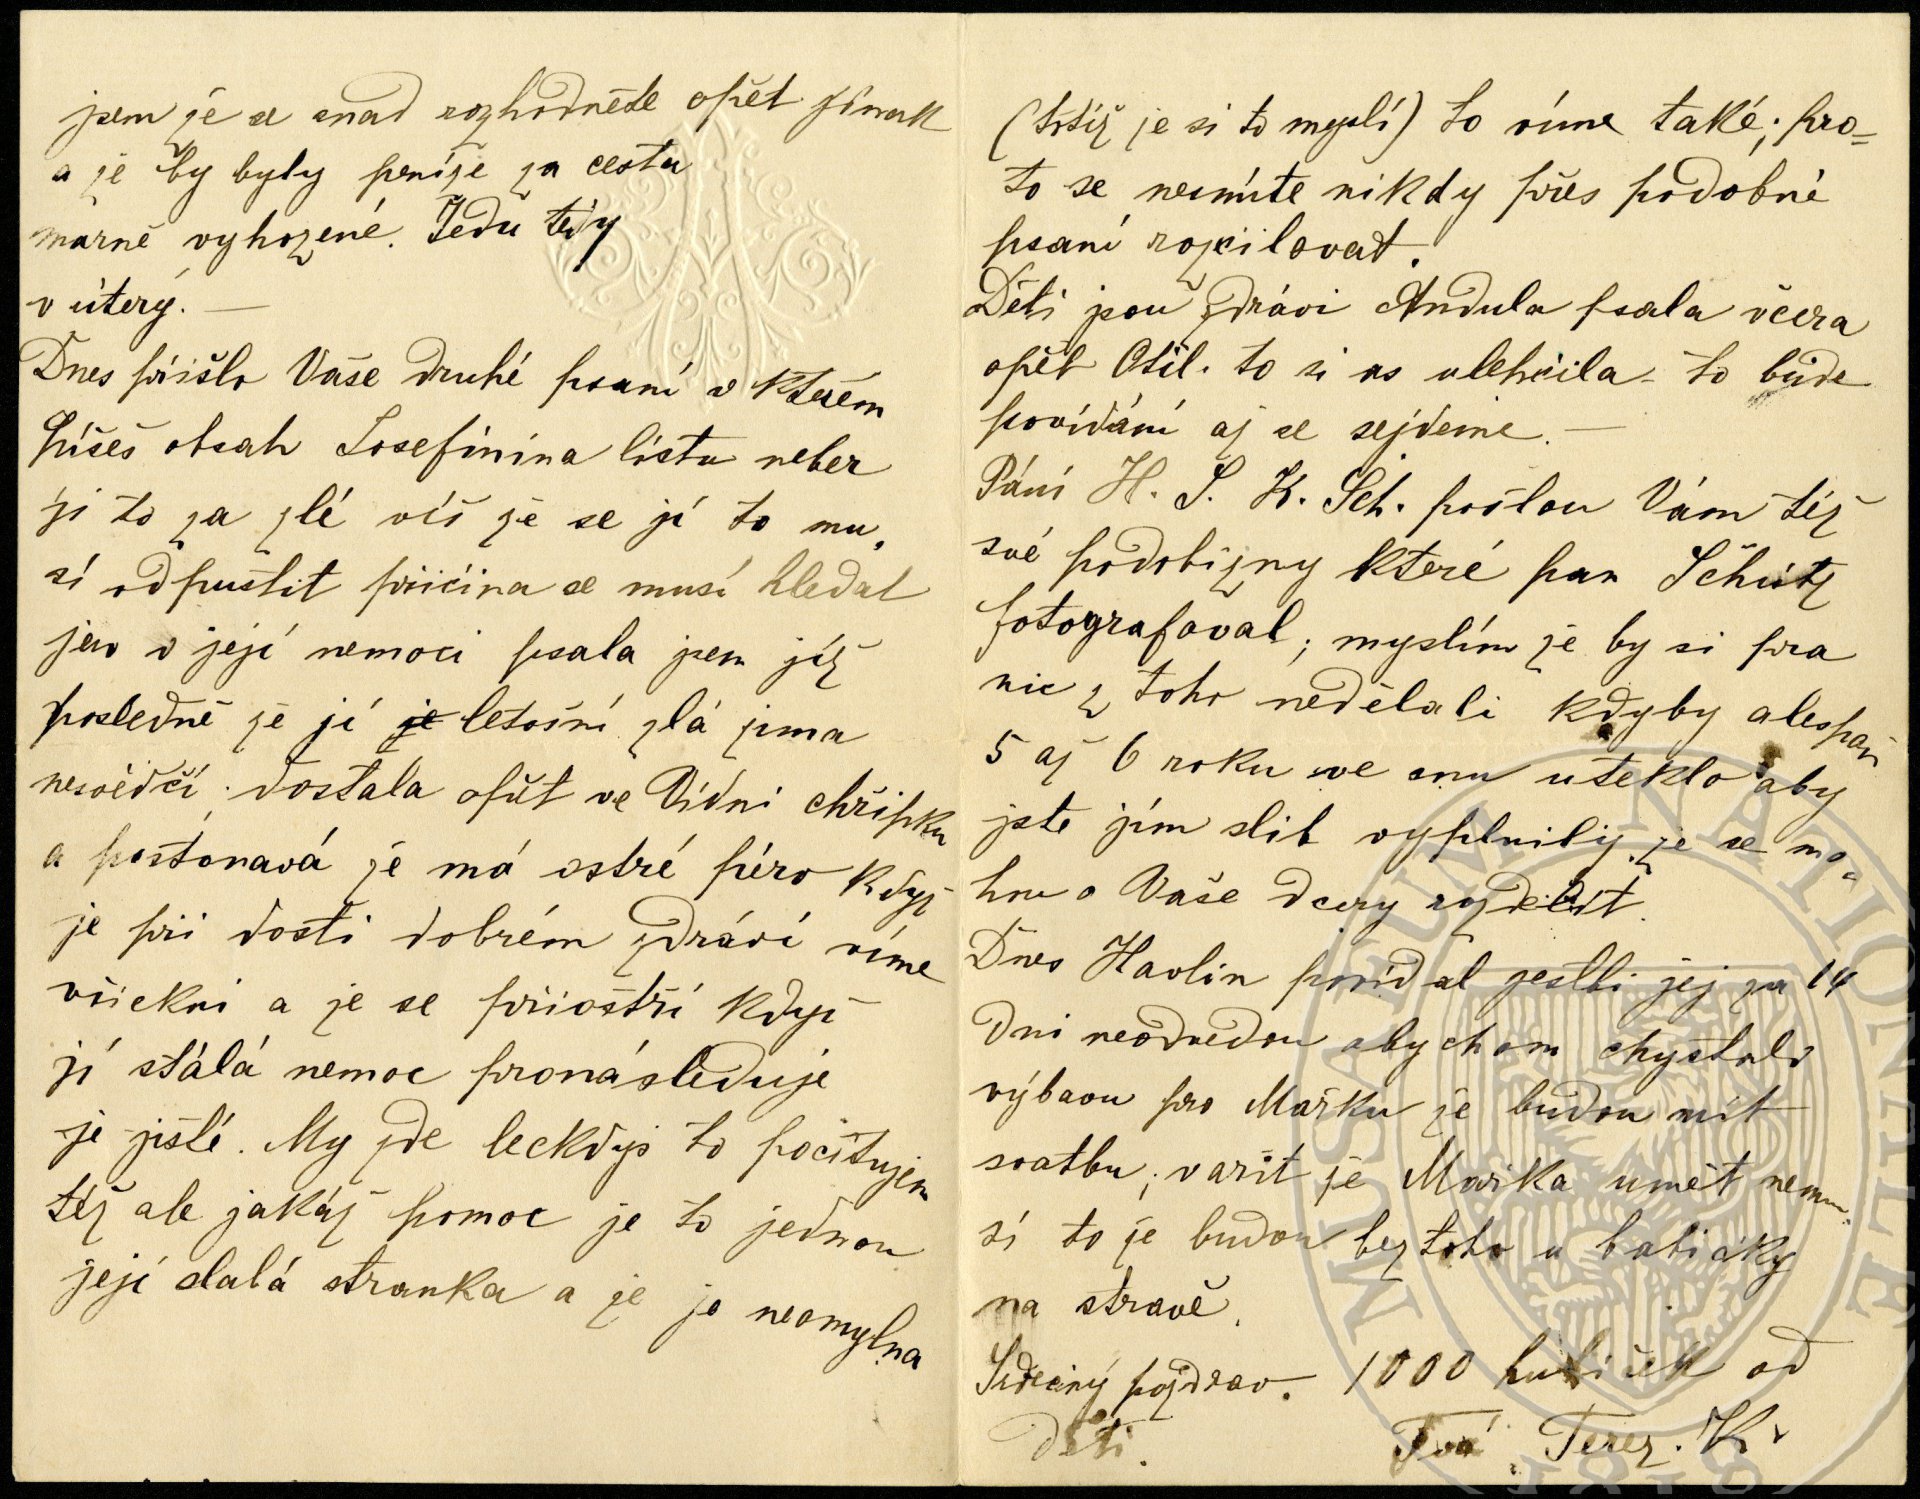 jsem že se snad rozhodnete opět jinak
a že by byly peníze za cestu
marně vyhozené. Jedu tedy
v úterý. —
Dnes přišlo Vaše druhé psaní v kterém
píšeš obsah Josefinina listu neber
jí to za zlé víš že se jí to mu„
sí odpustit příčina se musí hledat
jen v její nemoci psala jsem již
posledně že jí je letošní zlá zima
nesvědčí. dostala opět ve Vídni chřipku
a postonává že má ostré péro když
je při dosti dobrém zdráví víme
všickni a že se přiostří když
jí stálá nemoc pronásleduje
je jisté. My zde leckdys to pocítujem
též ale jakáž pomoc je to jednou
její slabá stranka a že je neomylna
(totiž že si to myslí) to víme také; pro=
to se nesmíte nikdy přes podobné
psaní rozčilovat.
Děti jsou zdrávi Andula psala včera
opět Otil. to si as ulehčila - to bude
povídání až se sejdeme. —
Páni H. S. K. Sch. pošlou Vám též
své podobizny které pan Schütz
fotografoval; myslím že by si pra
nic z toho nedělali kdyby alespoň
5 až 6 roku ve snu uteklo aby
jste jím slib vyplnily, že se mo„
hou o Vaše dcery rozdělit.
Dnes Havlín povídal jestli jej za 14
dni neodvedou abychom chystali
výbavu pro Mařku že budou mít
svatbu; vařit že Mařka umět nemu„
sí to že budou bez toho u babičky
na stravě.
Srdečný pozdrav. 1000 hubiček od
dětí. Tvá Terez. K.
MUSAEUM NATIONALE
1818